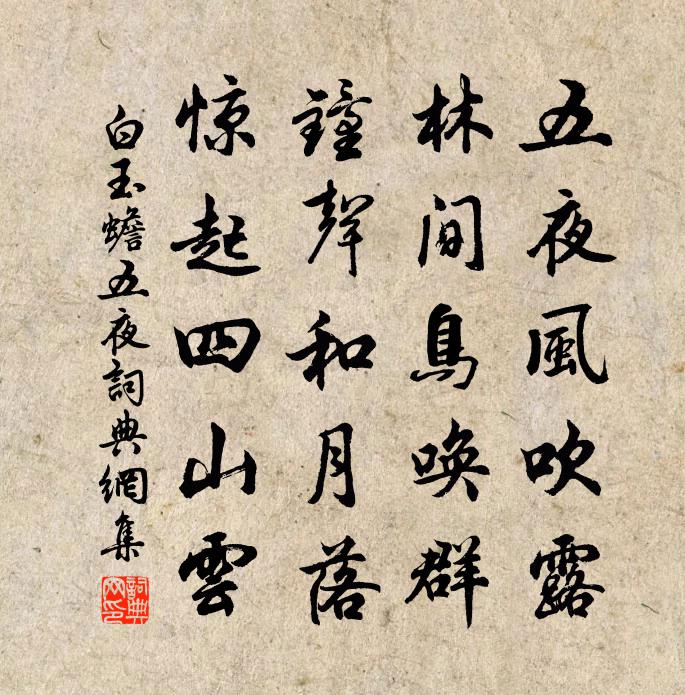 五夜風吹露
林間鳥喚群
鐘聲和月落
惊起四山雲
白玉蟾五夜詞典網集
詞典网印